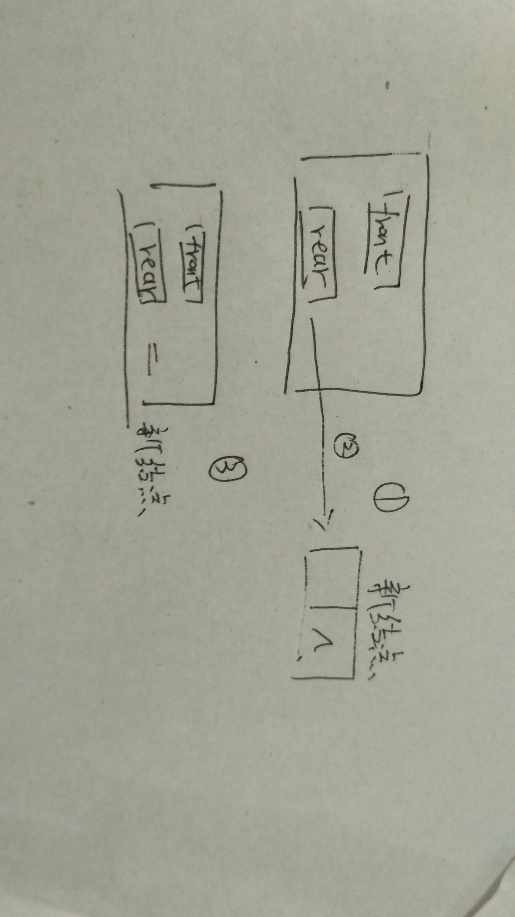 front
rear
①
②
新结点
∧
③
front
rear =
新结点